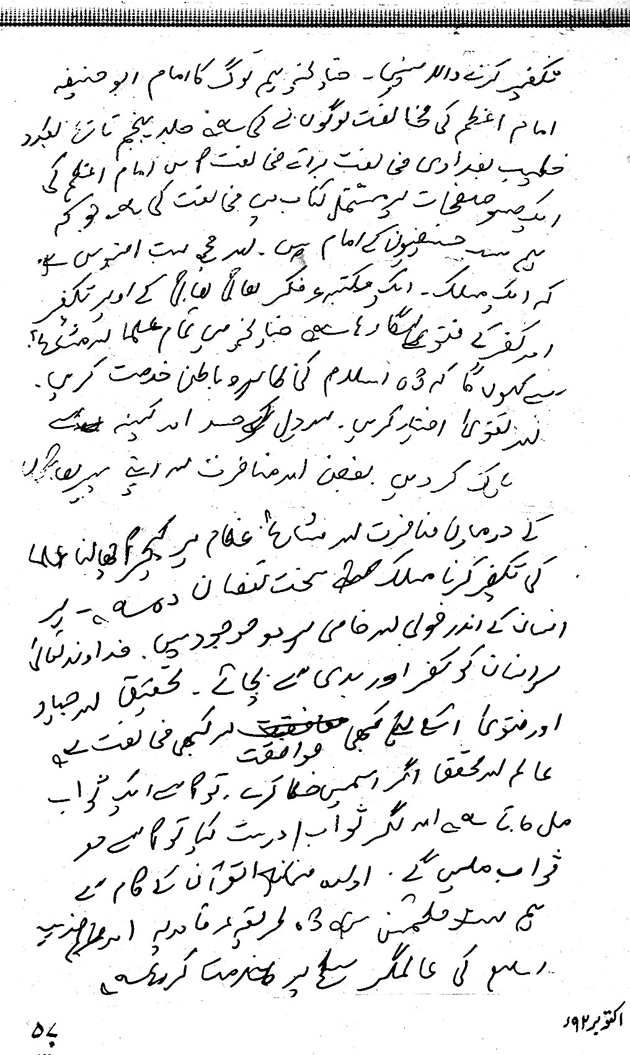 تکفیر کرنے والا پہنچا۔ چنانچہ ہم لوگ کا امام ابو حنیفہ
امام اعظم کی مخالفت لوگوں نے کی ہے جلد پنجم تاریخ بغداد
خطیب بغدادی مخالفت برائے مخالفت میں امام اعظم کی
ایک سو صفحات پر مشتمل کتاب میں مخالفت کی ہے جو کہ
ہم سب حنفیوں کے امام ہیں۔ اور مجھے بہت افسوس ہے
کہ ایک مسلک۔ ایک مکتبہ فکر بھائی بھائی کے اوپر تکفیر
اور کفر کے فتویٰ لگا رہا ہے چنانچہ میں تمام علماء اور مشائخ
سے کہوں گا کہ وہ اسلام کی ظاہر و باطن خدمت کریں۔
اور تقویٰ اختیار کریں۔ اور دل کو حسد اور کینہ سے
پاک کر دیں بغض اور منافرت اور اپنے پیر بھائیوں
کے درمیان منافرت اور مشائخ عظام پر کیچڑ اچھالنا علماء
کی تکفیر کرنا مسلک سخت نقصان دہ ہے۔ ہر
انسان کے اندر خوبی اور خامی ہر دو موجود ہیں۔ خداوند تعالیٰ
ہر انسان کو کفر اور بدی سے بچائے۔ تحقیق اور جہاد
اور فتویٰ اسکے لیے کبھی موافقت اور کبھی مخالفت ہے
عالم اور محقق اگر اسمیں خطا کرے۔ تو اسے ایک ثواب
مل جاتا ہے اور اگر ثواب / درست کیا تو اسے دو
ثواب ملیں گے۔ ادارہ منہاج القرآن کے کام سے
ہم سب مطمئن ہیں وہ طریقہ قادریہ اور مذہب
اسلام کی عالمگیر سطح پر خدمت کر رہا ہے
اکتوبر ۹۲ء
۵۷